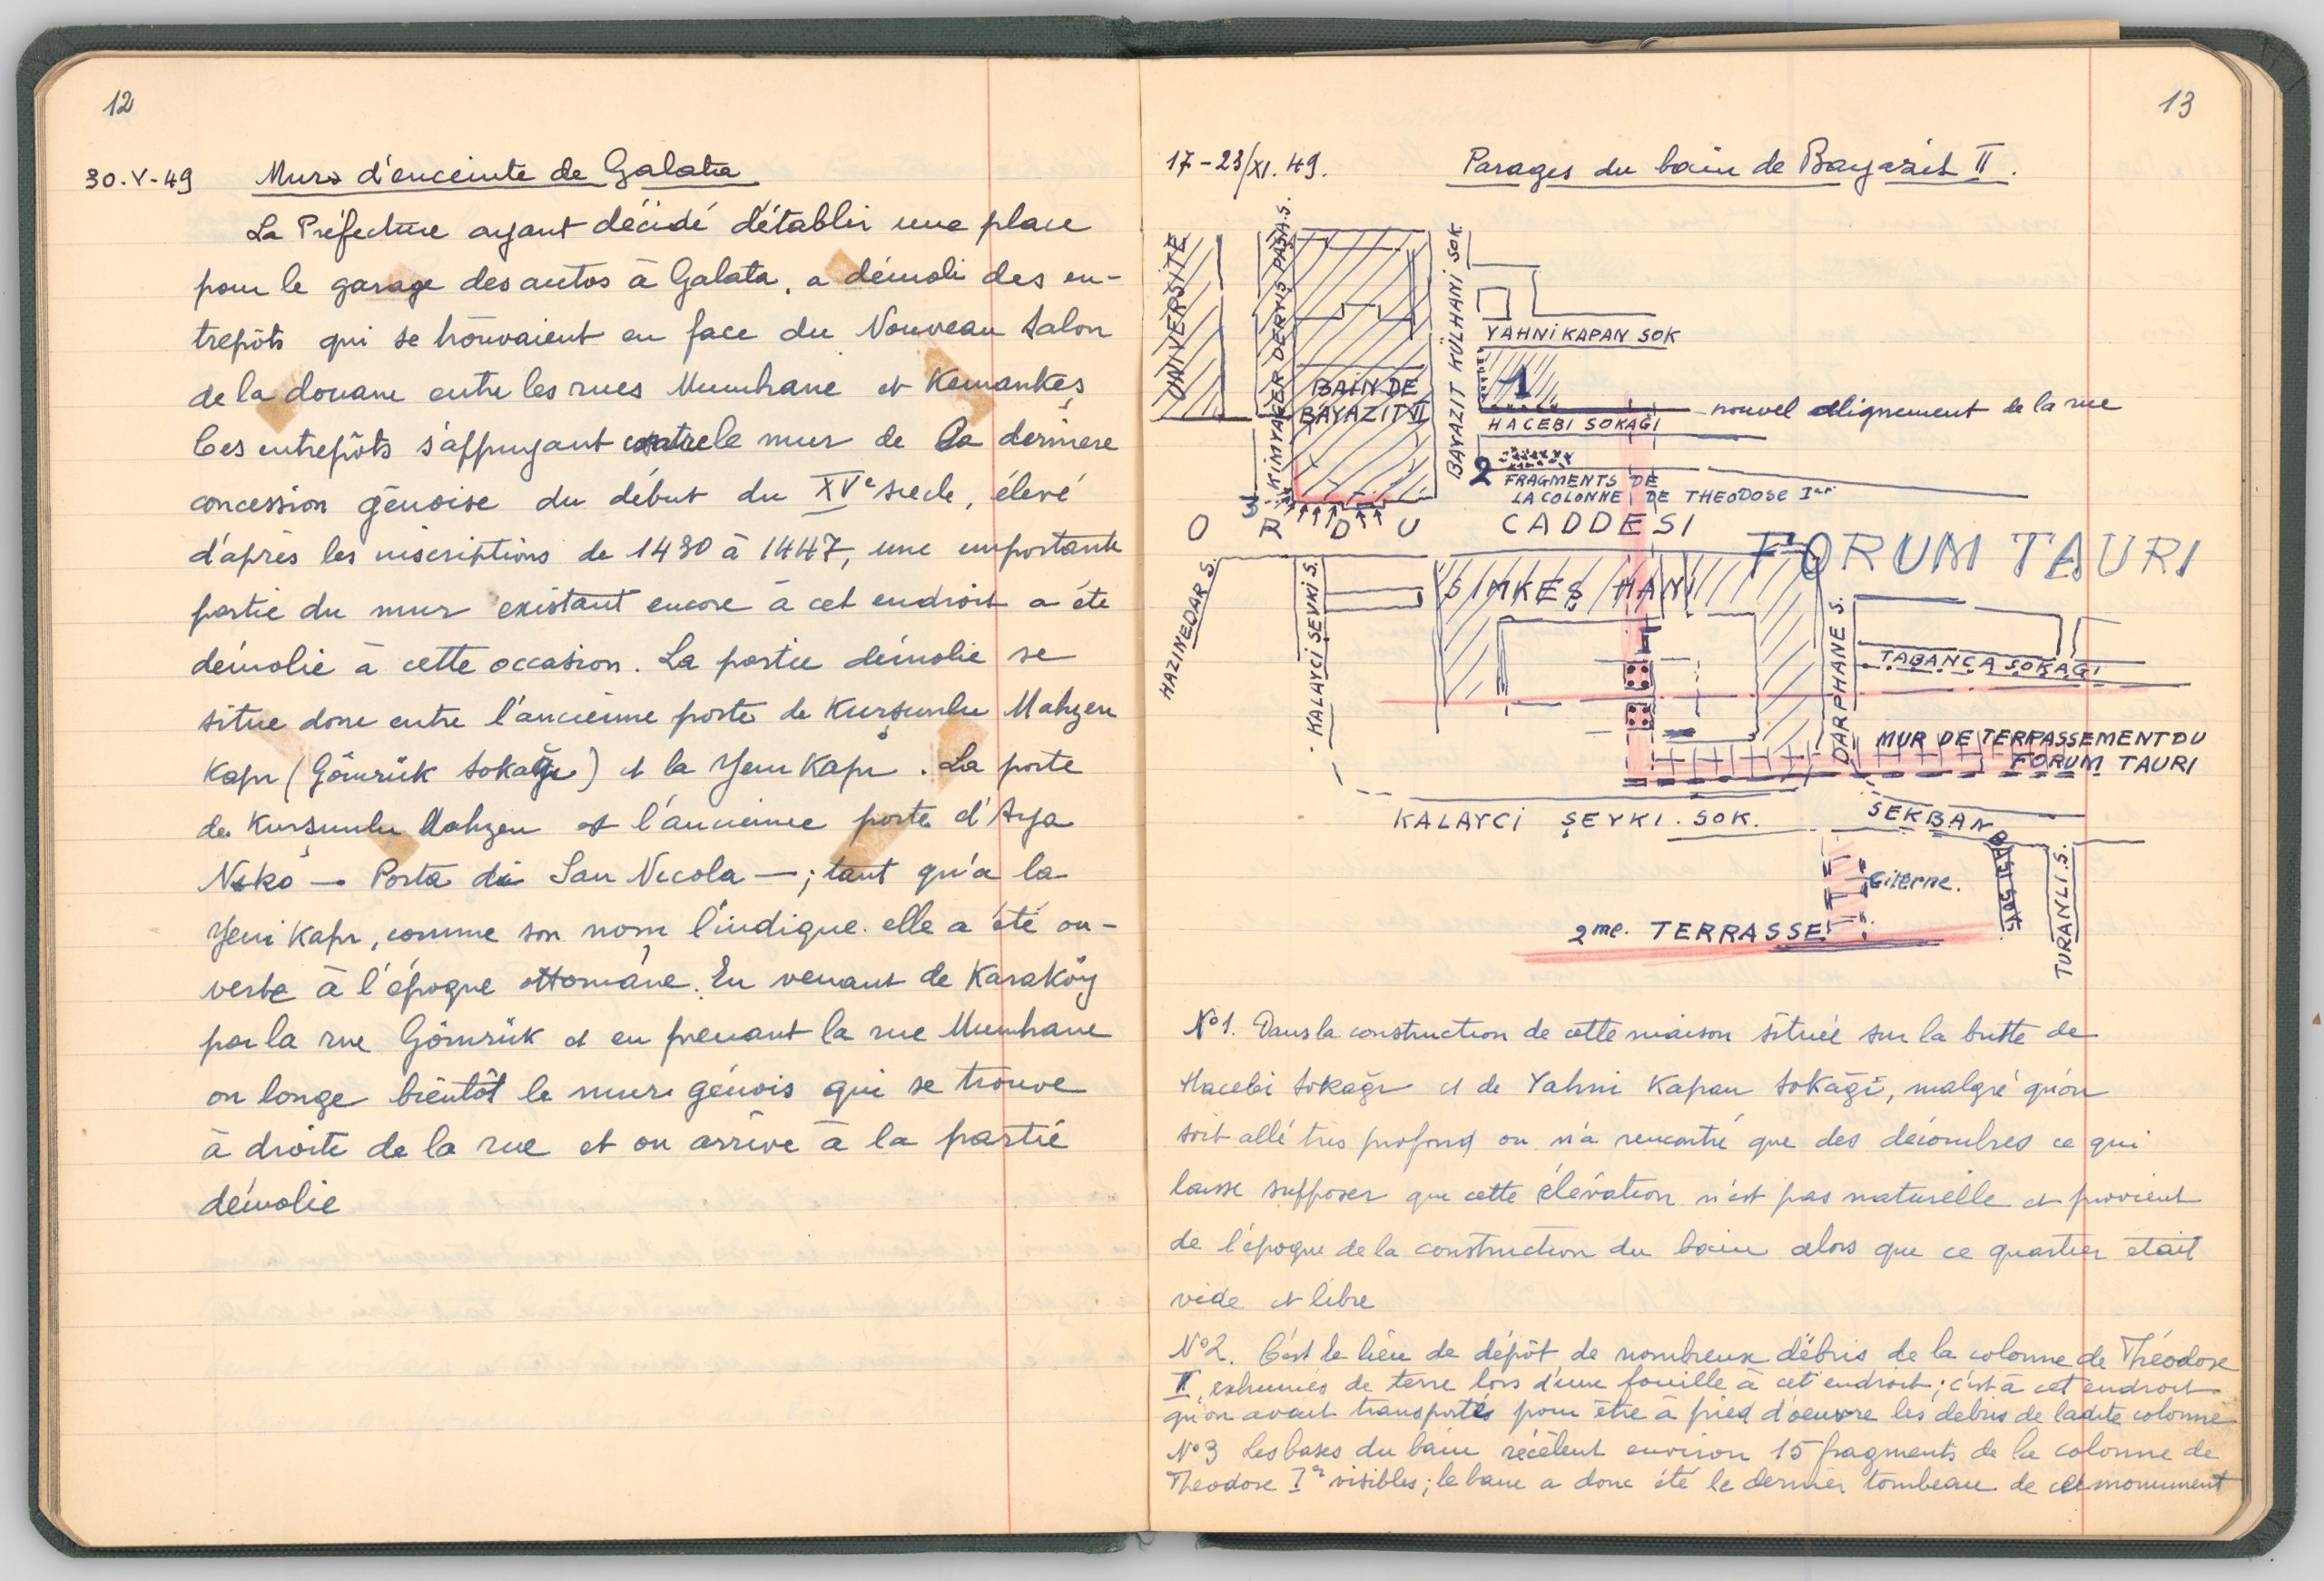 12
30.V-49 Murs d'enceinte de Galata
La Préfecture ayant décidé d'établir une place
pour le garage des autos à Galata, a démoli des en-
trepôts qui se trouvaient en face du Nouveau Salon
de la douane entre les rues Mumhane et Kemankeş
Ces entrepôts s'appuyant contre le mur de la dernière
concession génoise du début du XVe siècle, élevé
d'après les inscriptions de 1430 à 1447, une importante
partie du mur existant encore à cet endroit a été
démolie à cette occasion. La partie démolie se
situe donc entre l'ancienne porte de Kurşunlu Mahzen
Kapı (Gömrük Sokağı) et la Yeni Kapı. La porte
de Kurşunlu Mahzen est l'ancienne porte d'Aya
Niko — Porta di San Nicola —; tant qu'à la
Yeni Kapı, comme son nom l'indique elle a été ou-
verte à l'époque ottomane. En venant de Karaköy
par la rue Gömrük et en prenant la rue Mumhane
on longe bientôt le mur génois qui se trouve
à droite de la rue et on arrive à la partie
démolie
13
17-23/XI.49. Parages du bain de Bayazit II.
UNIVERSITE
KİMYAKER DERVİŞ PAŞA S.
BAIN DE
BAYAZIT II
BAYAZIT KÜLHANİ SOK
YAHNİ KAPAN SOK
1
nouvel alignement de la rue
HACEBİ SOKAĞI
2
FRAGMENTS DE
LA COLONNE DE THEODOSE Ier
3
ORDU CADDESI
FORUM TAURI
HAZINEDAR S.
KALAYCİ ŞEVKİ S.
SIMKEŞ HANI
DARPHANE S.
TABANCA SOKAGI
MUR DE TERRASSEMENT DU
FORUM TAURI
KALAYCİ ŞEVKI. SOK.
SEKBAN
SOK
TURANLI.S.
Citerne.
2me. TERRASSE
No1. Dans la construction de cette maison située sur la butte de
Hacebi Sokağı et de Yahni Kapan Sokağı, malgré qu'on
soit allé très profond on n'a rencontré que des décombres ce qui
laisse supposer que cette élévation n'est pas naturelle et provient
de l'époque de la construction du bain alors que ce quartier était
vide et libre
No2. C'est le lieu de dépôt de nombreux débris de la colonne de Théodose
exhumés de terre lors d'une fouille à cet endroit; c'est à cet endroit
qu'on avait transportés pour être à pied d'oeuvre les debris de ladite colonne
No3 Les bases du bain recèlent environ 15 fragments de la colonne de
Theodose Ier visibles; le bain a donc été le dernier tombeau de ce monument